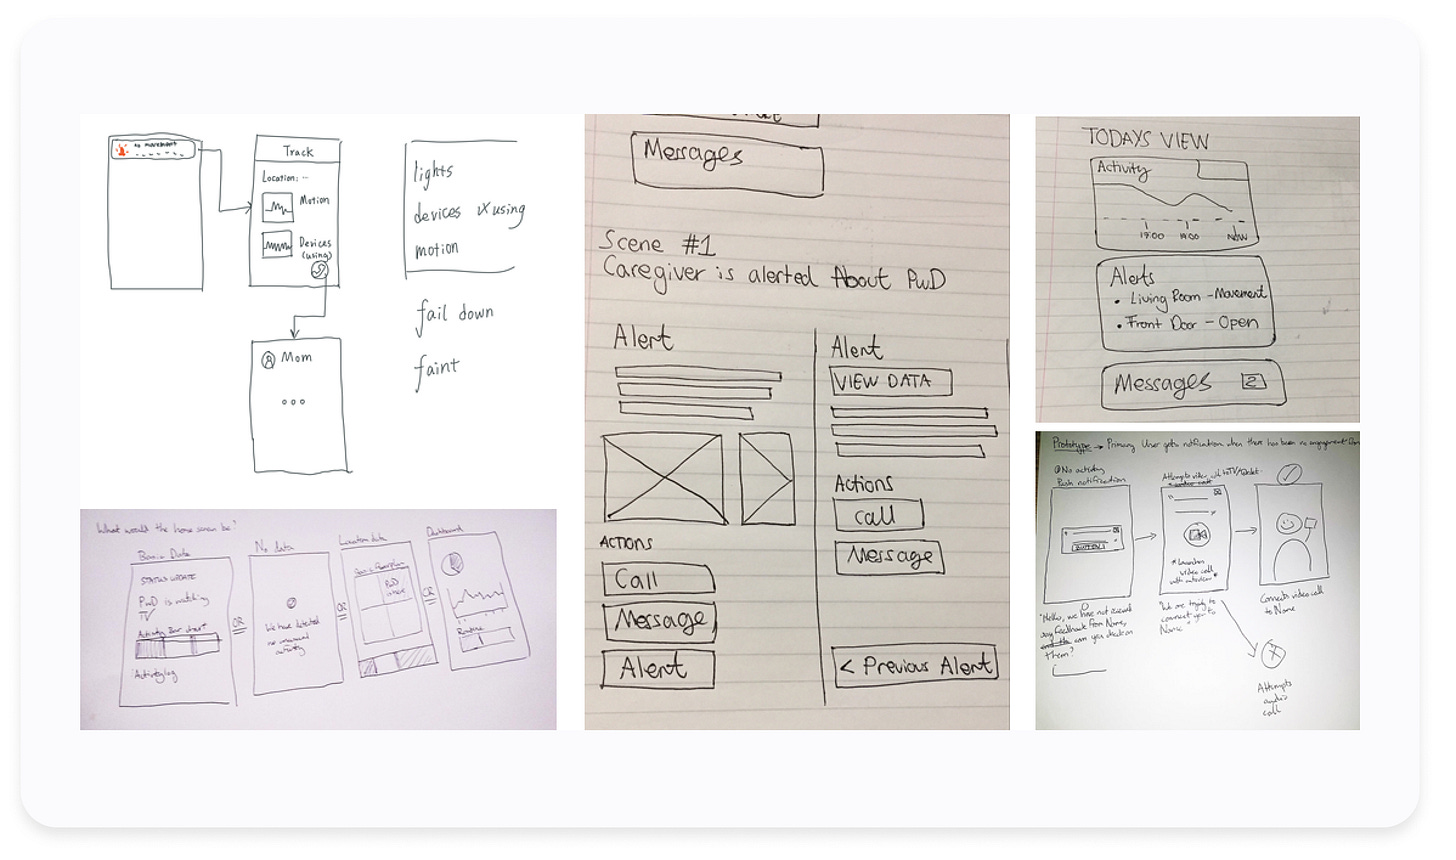 no movement
Track
Location: --
Motion
Devices
(using)
Mom
lights
devices using
motion
fail down
faint
What would the home screen be?
Basic Data
STATUS UPDATE
PwD is watching
TV
Activity Bar chart
Activity log
OR
No data
We have detected
no unusual
activity
OR
Location data
PwD
is here
OR
Dashboard
Routine
Messages
Scene #1
Caregiver is alerted About PwD
Alert
ACTIONS
Call
Message
Alert
Alert
VIEW DATA
Actions
Call
Message
< Previous Alert
TODAYS VIEW
Activity
Now
Alerts
• Living Room - Movement
• Front Door - Open
Messages 2
Prototype → Primary User gets notification when there has been no engagement from
No activity
Push notification
"Hello, we have not received
any feedback from Name,
can you check on
them?
Attempts video call to TV/tablet
* Launches
video call
with interview *
"We are trying to
connect you to
Name"
Connects video call
to Name
Attempts
audio
call